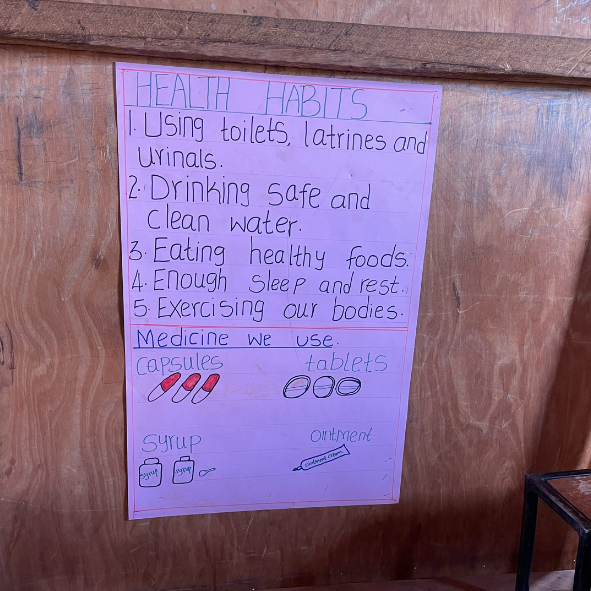 HEALTH HABITS
1. Using toilets, latrines and
urinals.
2. Drinking safe and
clean water.
3. Eating healthy foods.
4. Enough sleep and rest.
5. Exercising our bodies.
Medicine we use.
capsules tablets
syrup ointment
syrup syrup